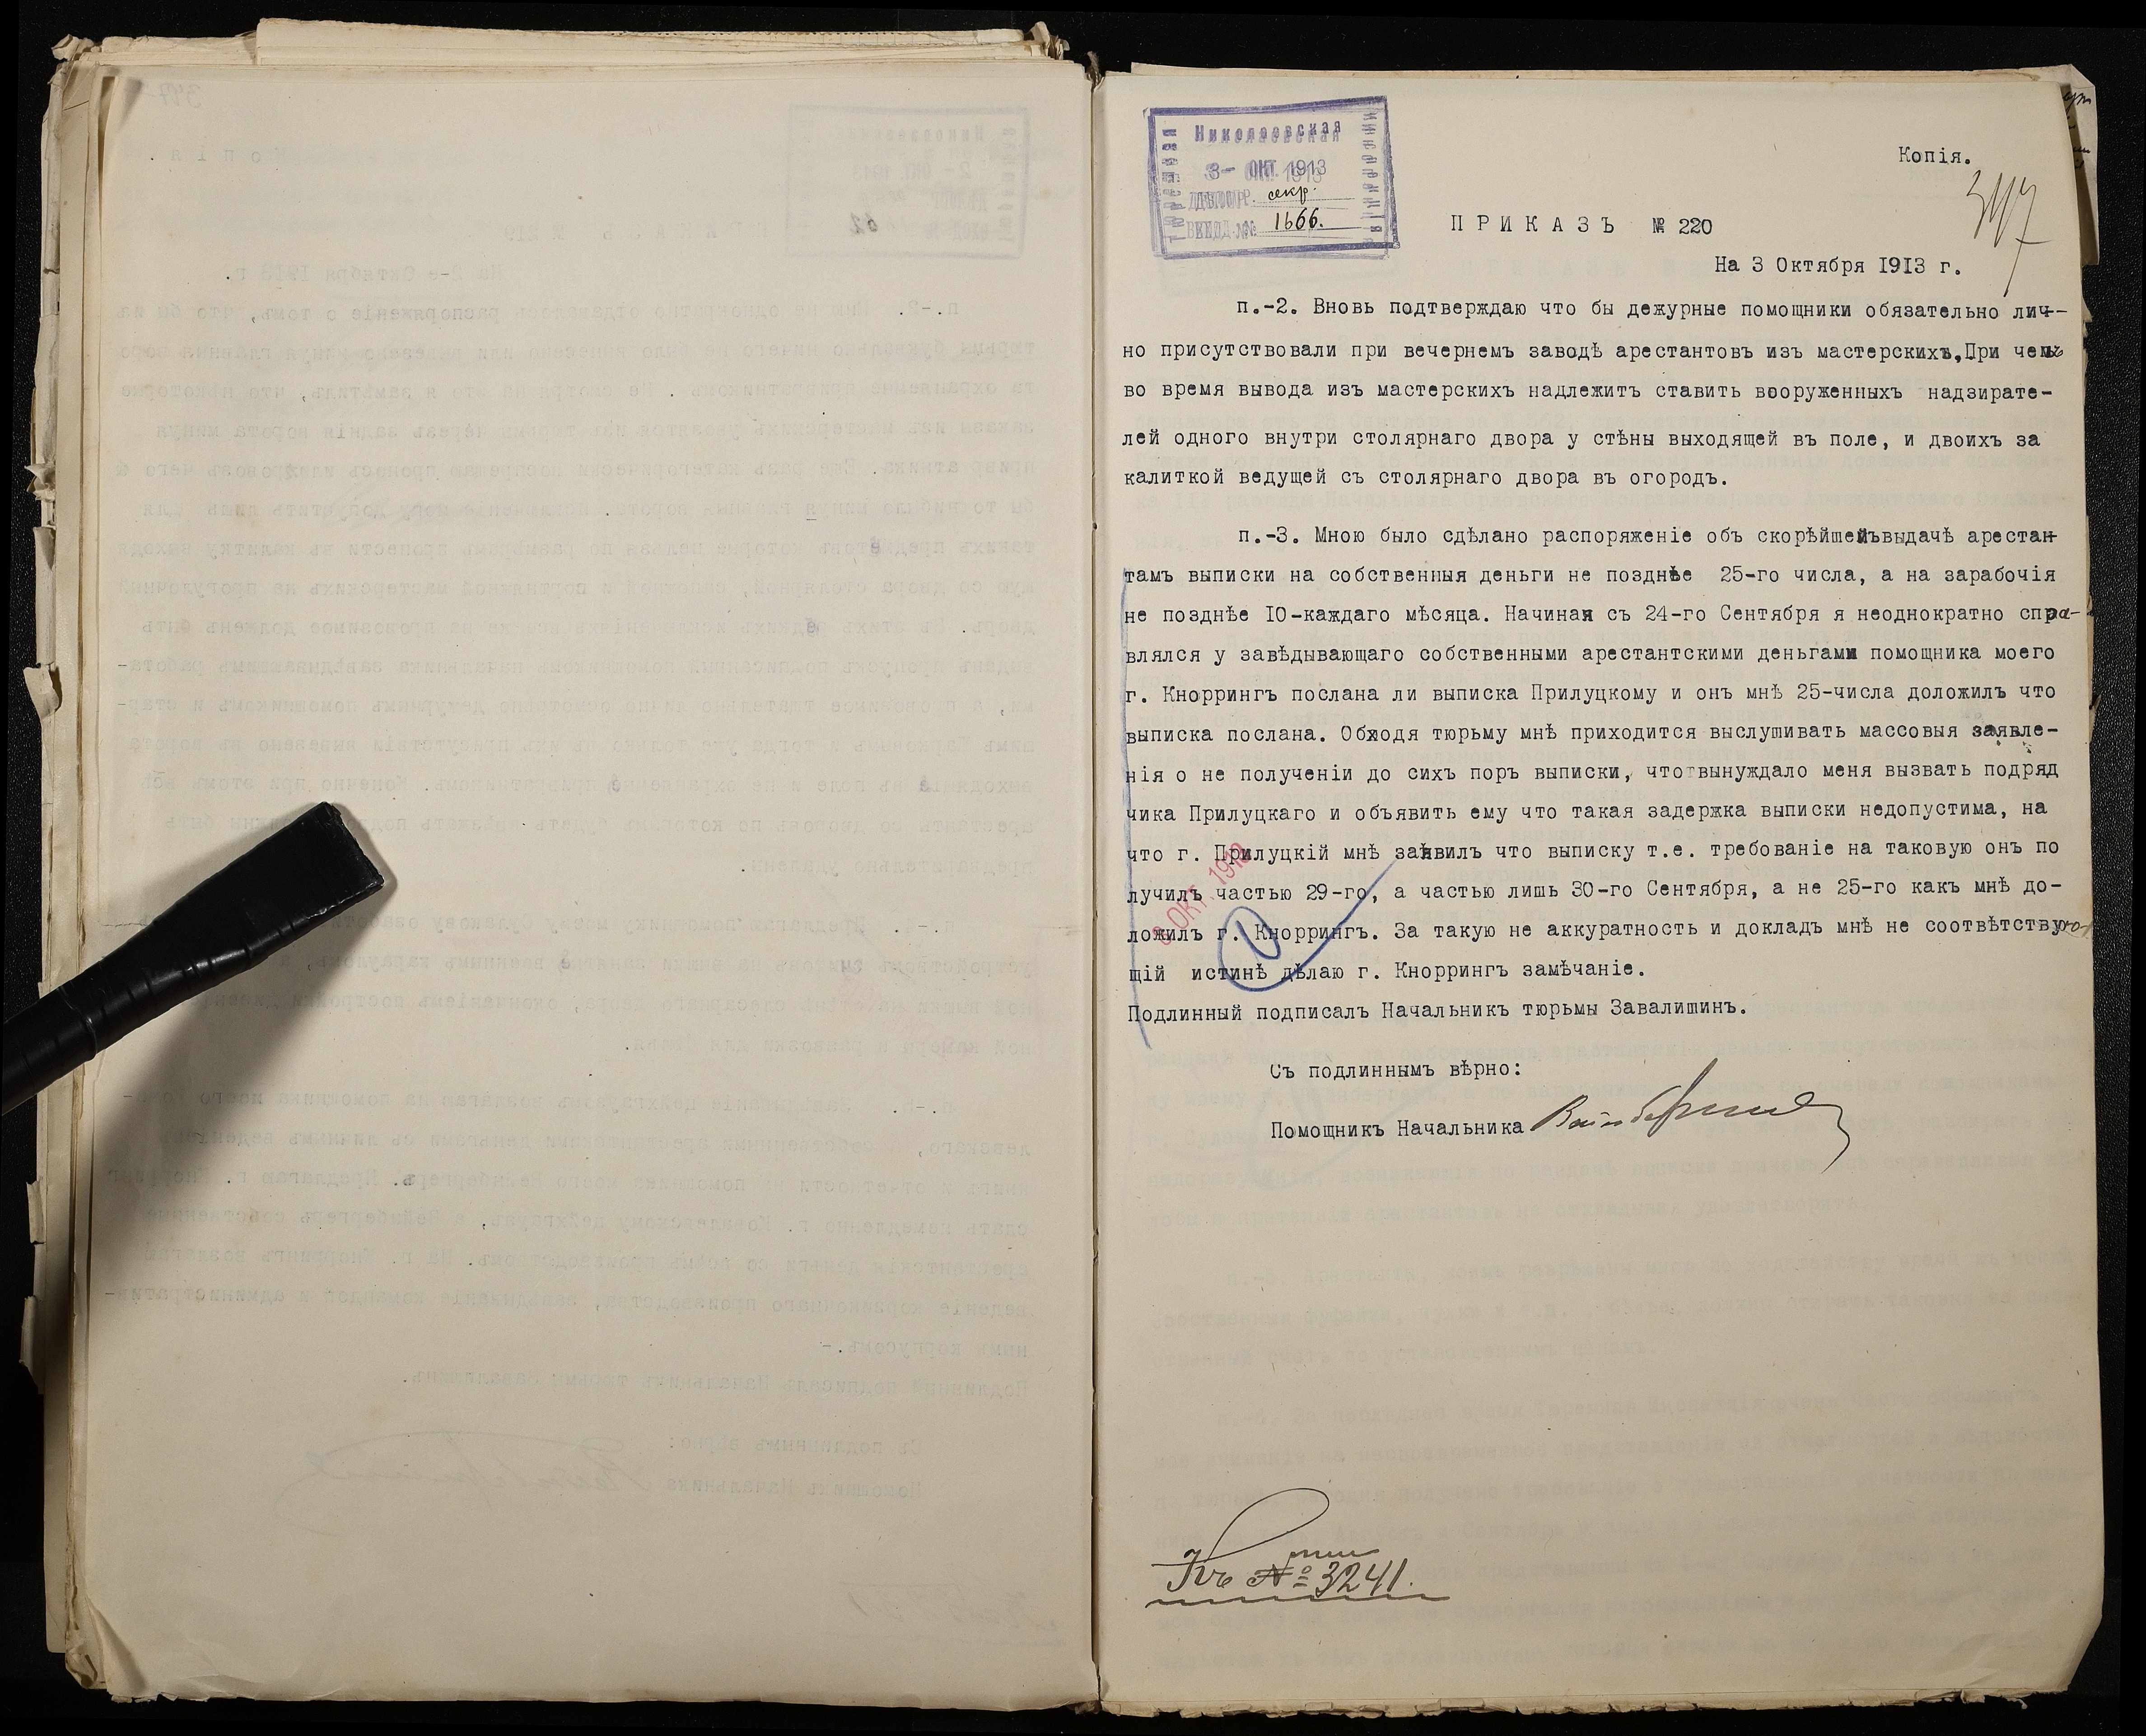 Николаевская
3- ОКТ. 1913
секр.
1666.
Копія.
347
ПРИКАЗЪ № 220
На 3 Октября 1913 г.
п.-2. Вновь подтверждаю что бы дежурные помощники обязательно лич-
но присутствовали при вечернемъ заводѣ арестантовъ изъ мастерскихъ, При чемъ
во время вывода изъ мастерскихъ надлежитъ ставить вооруженныхъ надзирате-
лей одного внутри столярнаго двора у стѣны выходящей въ поле, и двоихъ за
калиткой ведущей съ столярнаго двора въ огородъ.
п.-3. Мною было сдѣлано распоряженіе объ скорѣйшейъвыдачѣ арестан-
тамъ выписки на собственныя деньги не позднѣе 25-го числа, а на зарабочія
не позднѣе 10-каждаго мѣсяца. Начиная съ 24-го Сентября я неоднократно спра-
влялся у завѣдывающаго собственными арестантскими деньгами помощника моего
г. Кноррингъ послана ли выписка Прилуцкому и онъ мнѣ 25-числа доложилъ что
выписка послана. Обходя тюрьму мнѣ приходится выслушивать массовыя заявле-
нія о не полученіи до сихъ поръ выписки, что вынуждало меня вызвать подряд
чика Прилуцкаго и объявить ему что такая задержка выписки недопустима, на
что г. Прилуцкій мнѣ заявилъ что выписку т.е. требованіе на таковую онъ по
лучилъ частью 29-го, а частью лишь 30-го Сентября, а не 25-го какъ мнѣ до-
ложилъ г. Кноррингъ. За такую не аккуратность и докладъ мнѣ не соотвѣтствую-
щій истинѣ дѣлаю г. Кноррингъ замѣчаніе.
Подлинный подписалъ Начальникъ тюрьмы Завалишинъ.
ОКТ. 1913
Съ подлиннымъ вѣрно:
Помощникъ Начальника
Къ № 3241.